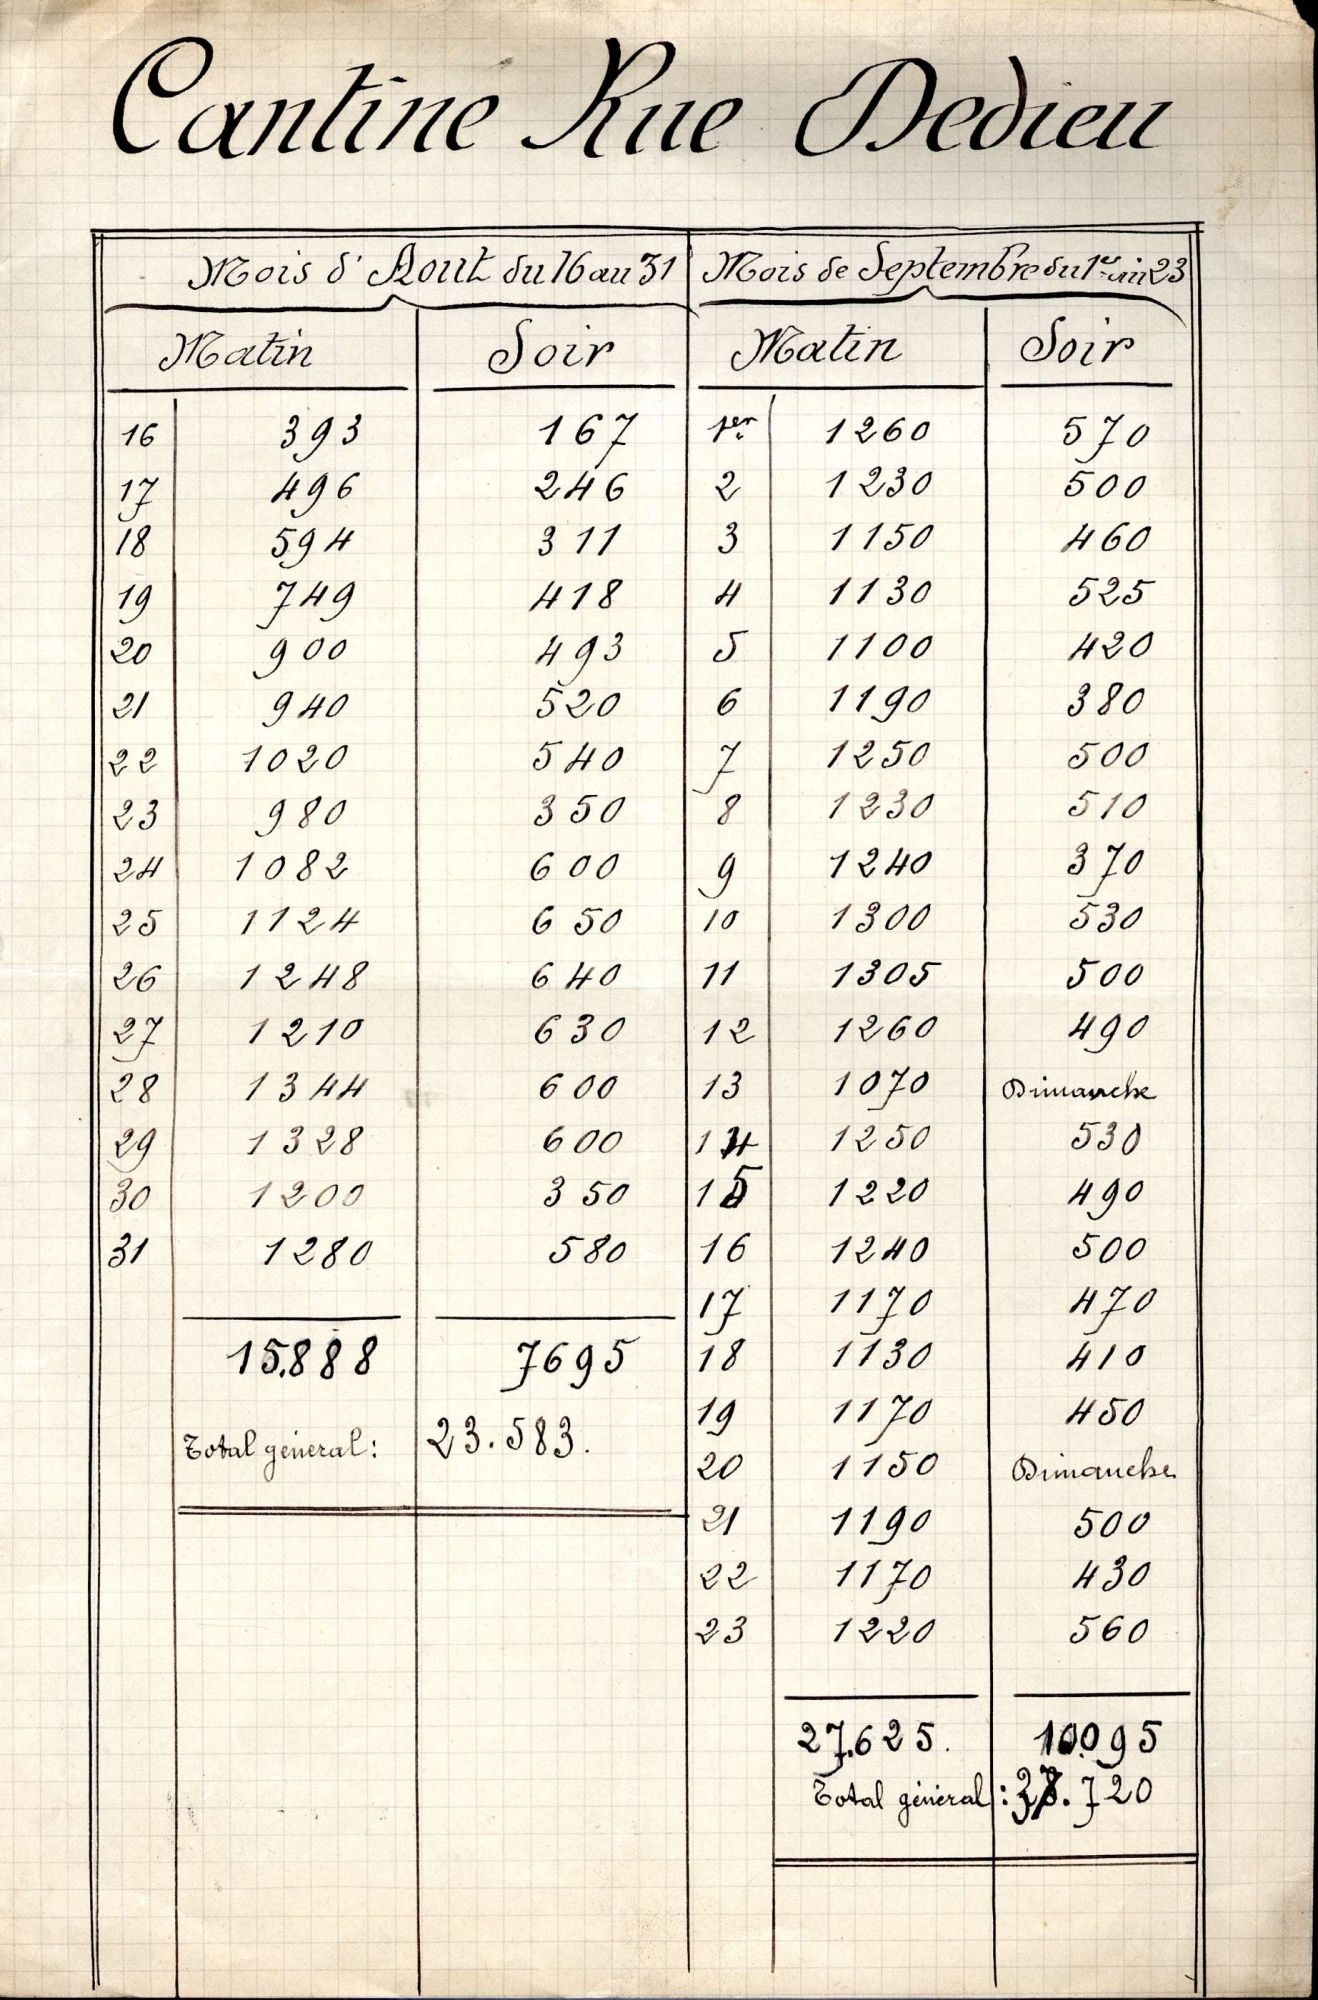 Cantine Rue Dedieu
Mois d'Aout du 16 au 31 Mois de Septembre du 1er au 23
Matin Soir Matin Soir
16 393 167 1er 1260 570
17 496 246 2 1230 500
18 594 311 3 1150 460
19 749 418 4 1130 525
20 900 493 5 1100 420
21 940 520 6 1190 380
22 1020 540 7 1250 500
23 980 350 8 1230 510
24 1082 600 9 1240 370
25 1124 650 10 1300 530
26 1248 640 11 1305 500
27 1210 630 12 1260 490
28 1344 600 13 1070 Dimanche
29 1328 600 14 1250 530
30 1200 350 15 1220 490
31 1280 580 16 1240 500
17 1170 470
15.888 7695 18 1130 410
19 1170 450
Total général: 23.583. 20 1150 Dimanche
21 1190 500
22 1170 430
23 1220 560
27.625. 10.095
Total général: 37.720